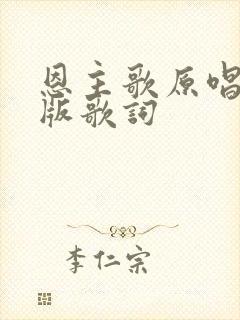 恩主歌原唱
版歌詞
李仁宗